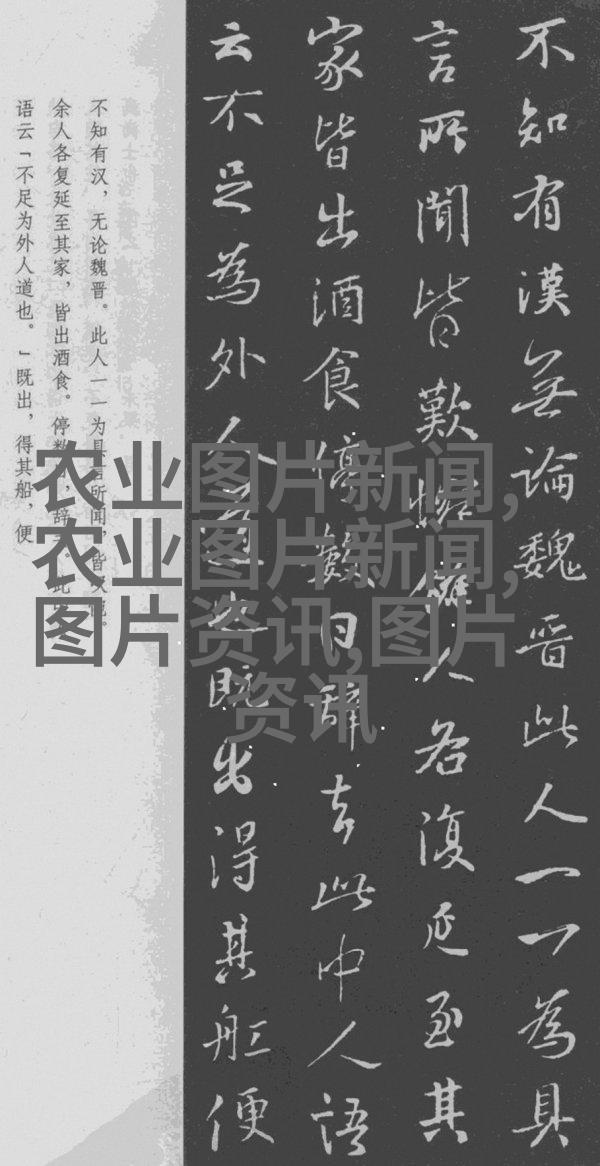 不知有漢無論魏晋此人一一為具
言所聞皆歎惋餘人各復延至其
家皆出酒食停數日辭去此中人語
云不足為外人道也既出得其舡便
不知有汉，无论魏晋。此人一一为具言所闻，皆
余人各复延至其家，皆出酒食。停数，辞此
语云「不足为外人道也。」既出，得其船，便
农业图片新闻,
农业图片新闻,
图片资讯,图片
资讯